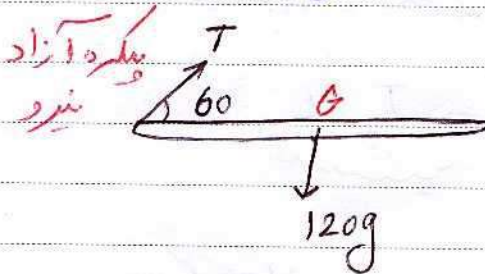 پیکره آزاد
نیرو
T
60
G
120g